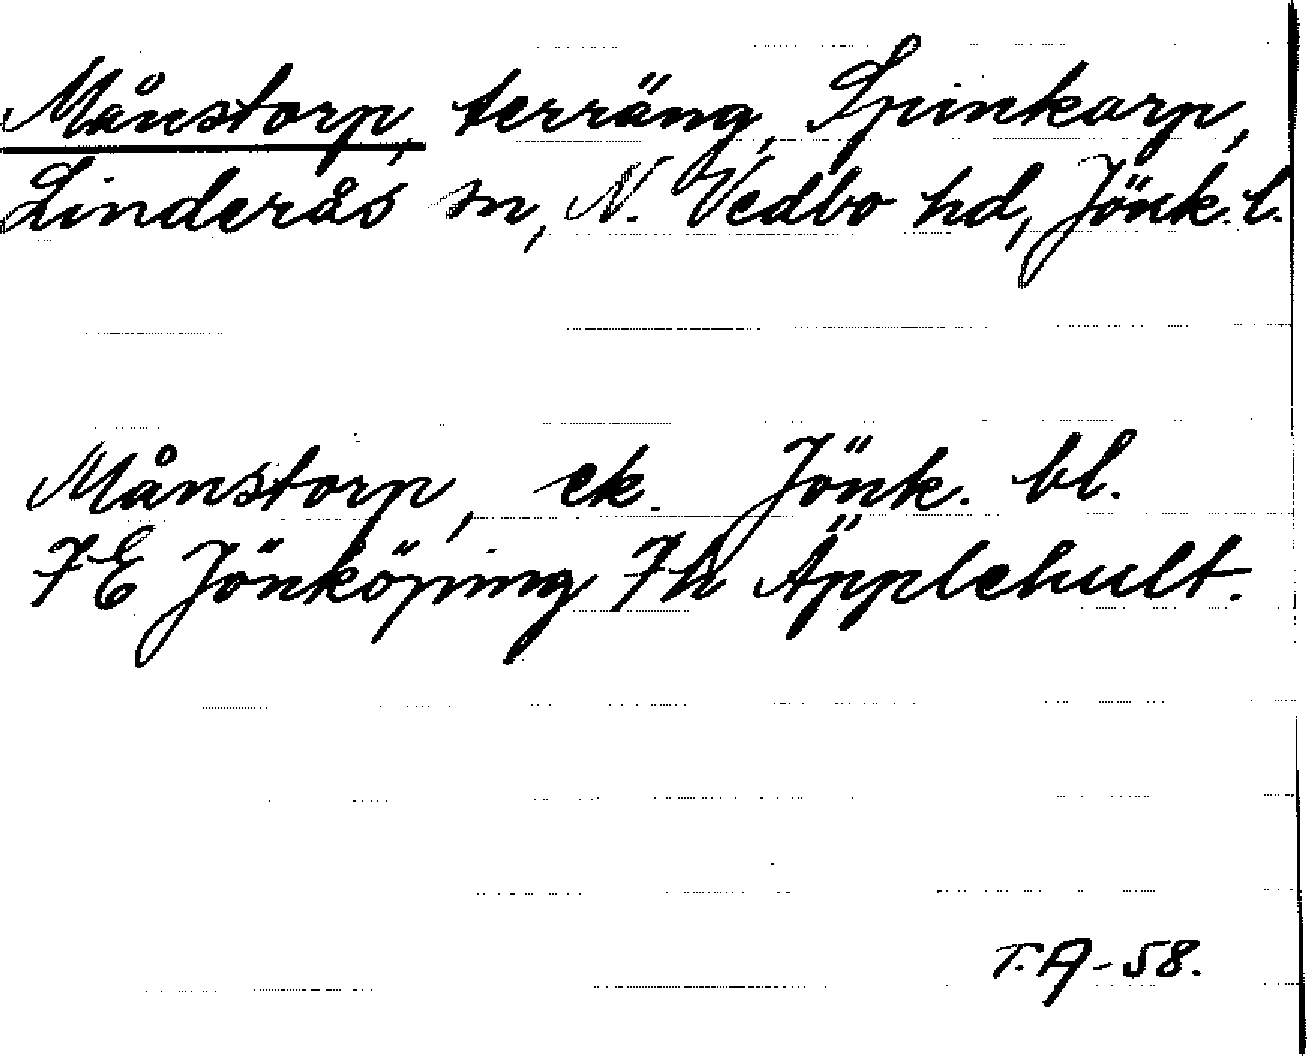 Månstorp, terräng, Spinkarp,
Linderås sn, N. Vedbo hd, Jönk. l.
Månstorp, ek. Jönk. bl.
7E Jönköping 7h Äpplehult.
T.A-58.